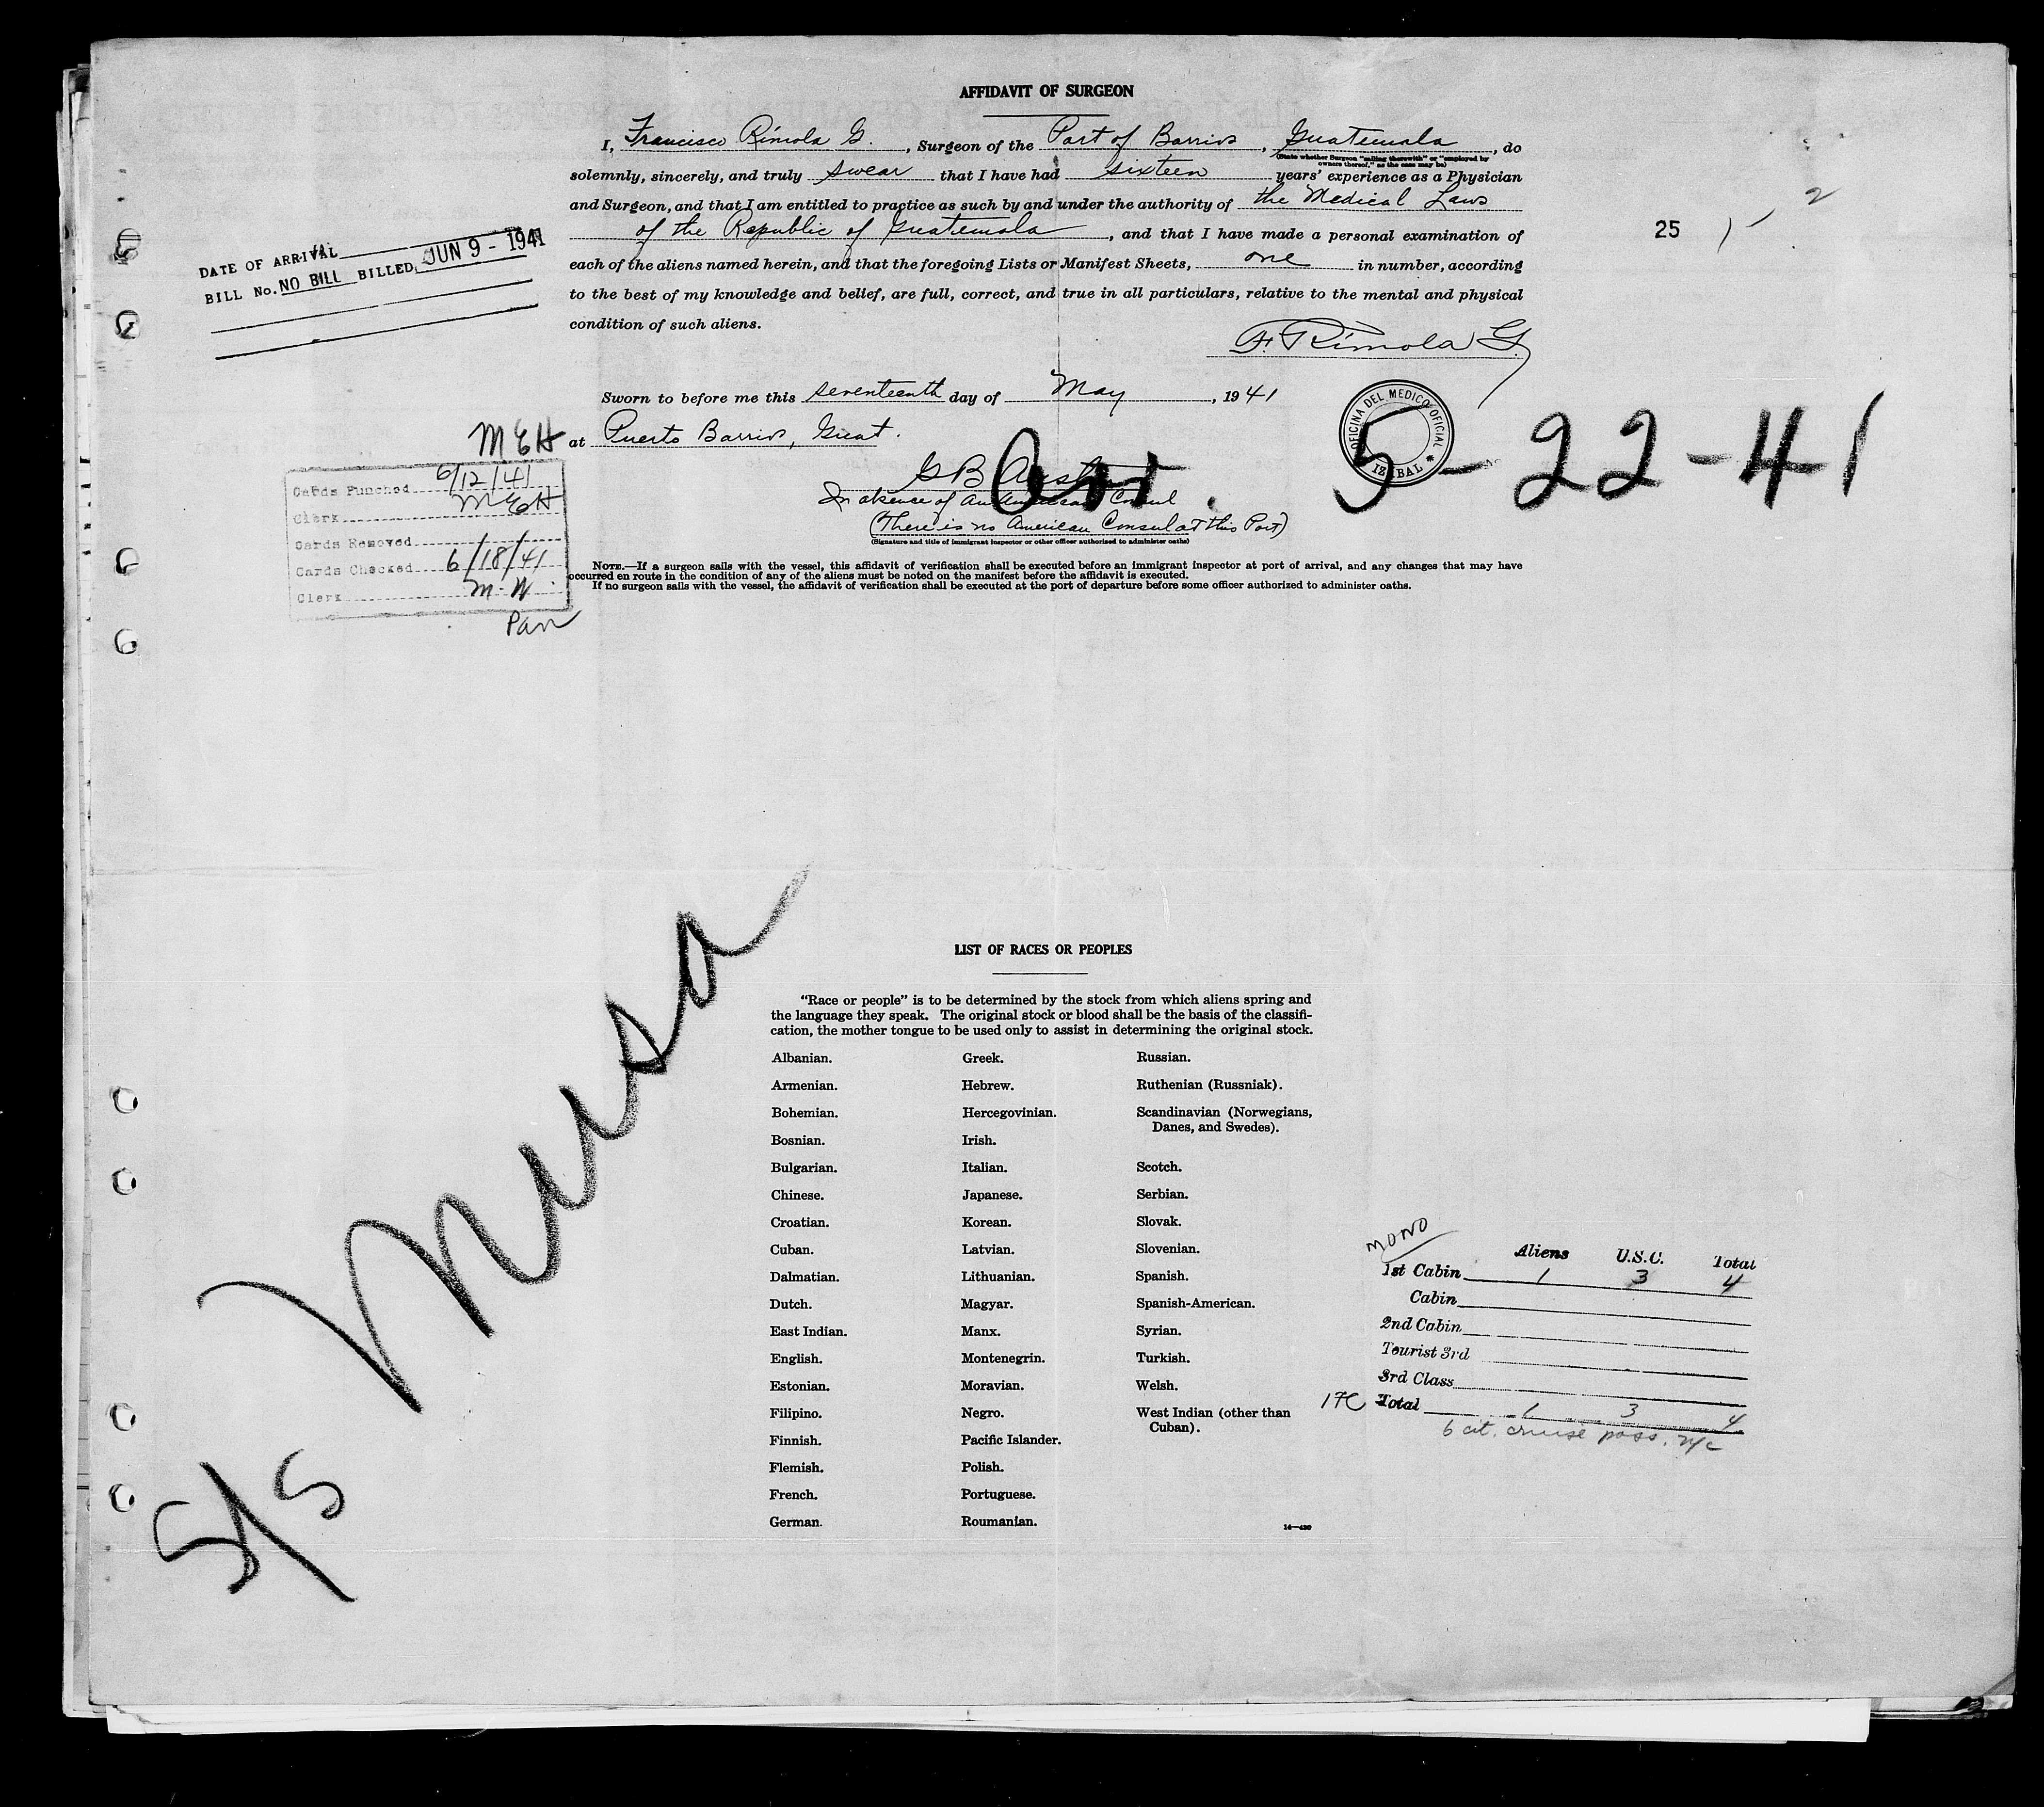 AFFIDAVIT OF SURGEON
I, Francisco Rímola G. , Surgeon of the Port of Barrios , Guatemala , do
(State whether Surgeon "sailing therewith" or "employed by
owners thereof," as the case may be)
solemnly, sincerely, and truly swear that I have had sixteen years' experience as a Physician
and Surgeon, and that I am entitled to practice as such by and under the authority of the Medical Laws
of the Republic of Guatemala , and that I have made a personal examination of
each of the aliens named herein, and that the foregoing Lists or Manifest Sheets, one in number, according
to the best of my knowledge and belief, are full, correct, and true in all particulars, relative to the mental and physical
condition of such aliens.
F. Rímola G
25
2
DATE OF ARRIVAL
BILL No. NO BILL BILLED JUN 9 - 1941
Sworn to before me this seventeenth day of May , 1941
at Puerto Barrios, Guat.
OFICINA DEL MEDICO OFICIAL
IZABAL
Arr. 5-22-41
G B
In absence of an American Consul
(There is no American Consul at this Port)
(Signature and title of immigrant inspector or other officer authorized to administer oaths)
MEH
Cards Punched 6/12/41
Clerk MEH
Cards Removed
Cards Checked 6/18/41
Clerk M.W.
Pan
NOTE.—If a surgeon sails with the vessel, this affidavit of verification shall be executed before an immigrant inspector at port of arrival, and any changes that may have
occurred en route in the condition of any of the aliens must be noted on the manifest before the affidavit is executed.
If no surgeon sails with the vessel, the affidavit of verification shall be executed at the port of departure before some officer authorized to administer oaths.
S/S Musa
LIST OF RACES OR PEOPLES
"Race or people" is to be determined by the stock from which aliens spring and
the language they speak. The original stock or blood shall be the basis of the classifi-
cation, the mother tongue to be used only to assist in determining the original stock.
Albanian.
Armenian.
Bohemian.
Bosnian.
Bulgarian.
Chinese.
Croatian.
Cuban.
Dalmatian.
Dutch.
East Indian.
English.
Estonian.
Filipino.
Finnish.
Flemish.
French.
German.
Greek.
Hebrew.
Hercegovinian.
Irish.
Italian.
Japanese.
Korean.
Latvian.
Lithuanian.
Magyar.
Manx.
Montenegrin.
Moravian.
Negro.
Pacific Islander.
Polish.
Portuguese.
Roumanian.
Russian.
Ruthenian (Russniak).
Scandinavian (Norwegians,
Danes, and Swedes).
Scotch.
Serbian.
Slovak.
Slovenian.
Spanish.
Spanish-American.
Syrian.
Turkish.
Welsh.
West Indian (other than
Cuban).
MONO
Aliens U.S.C. Total
1st Cabin 1 3 4
Cabin
2nd Cabin
Tourist 3rd
3rd Class
17C Total 1 3 4
6 cit. cruise pass. n/c